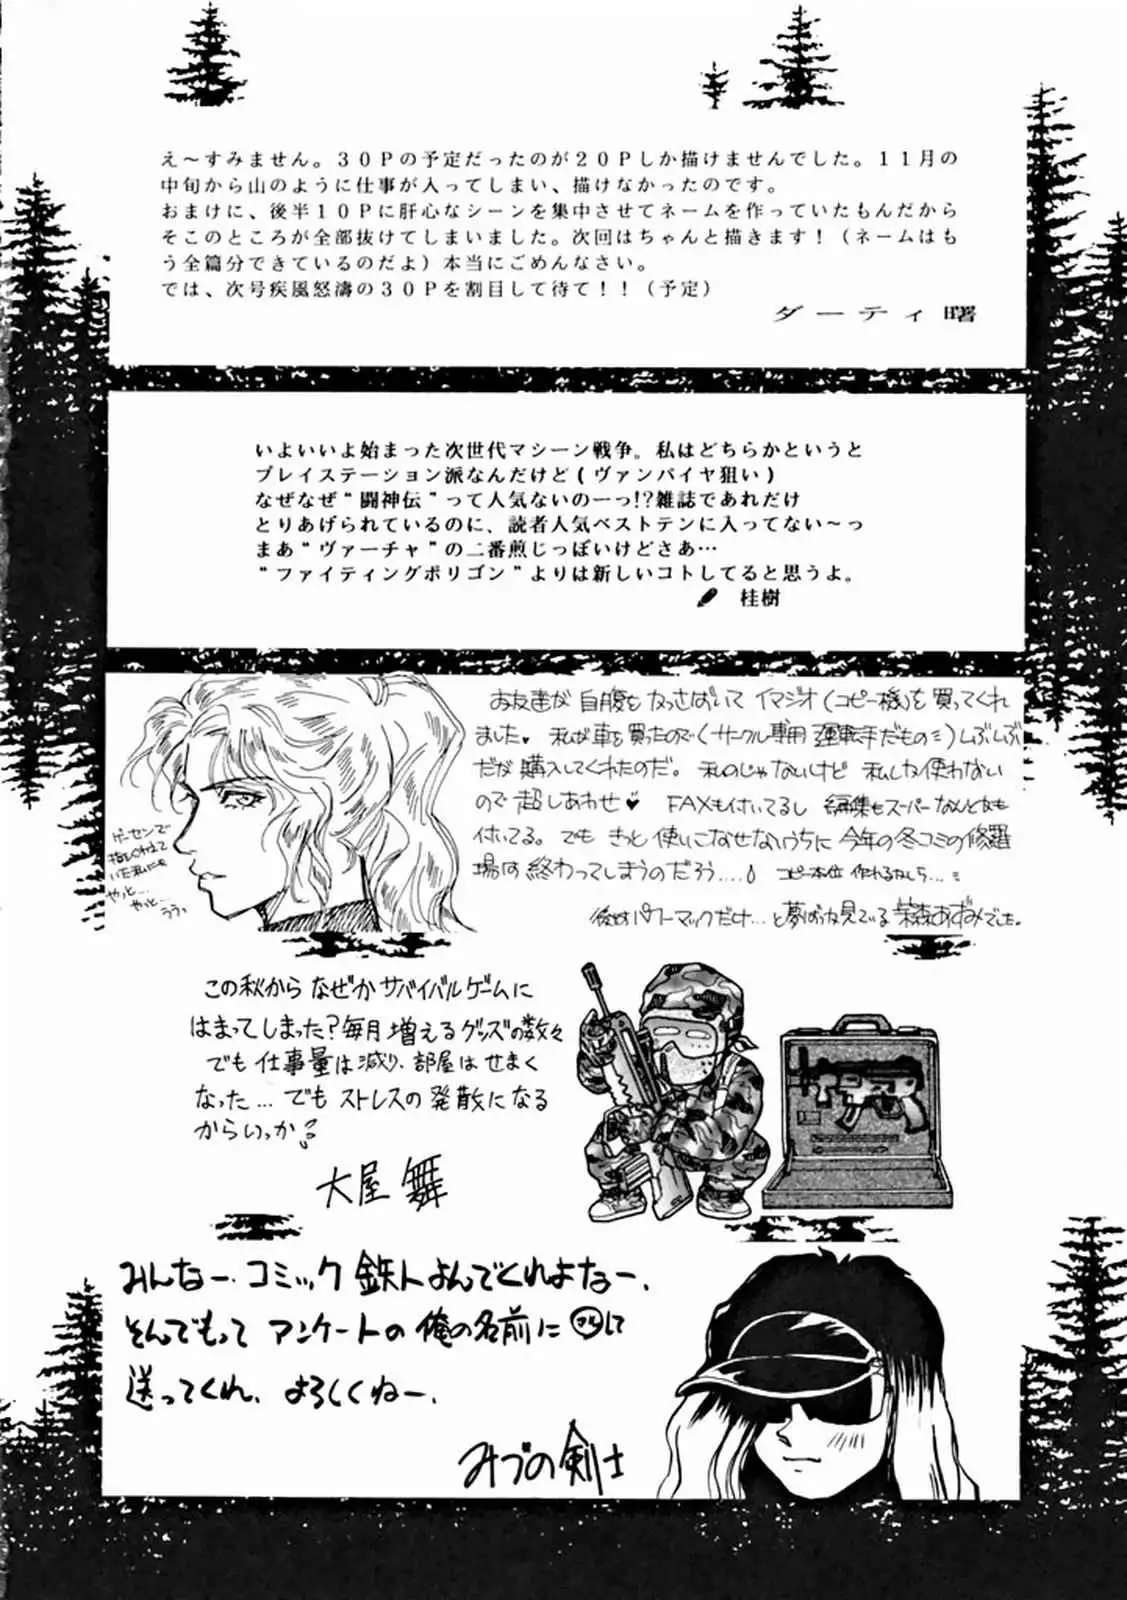 え～すみません。３０Ｐの予定だったのが２０Ｐしか描けませんでした。１１月の
中旬から山のように仕事が入ってしまい、描けなかったのです。
おまけに、後半１０Ｐに肝心なシーンを集中させてネームを作っていたもんだから
そこのところが全部抜けてしまいました。次回はちゃんと描きます！（ネームはも
う全篇分できているのだよ）本当にごめんなさい。
では、次号疾風怒濤の３０Ｐを割目して待て！！（予定）
ダーティ曙
いよいよ始まった次世代マシーン戦争。私はどちらかというと
プレイステーション派なんだけど(ヴァンパイヤ狙い)
なぜなぜ“闘神伝”って人気ないのーっ!?雑誌であれだけ
とりあげられているのに、読者人気ベストテンに入ってない～っ
まあ“ヴァーチャ”の二番煎じっぽいけどさあ…
“ファイティングポリゴン”よりは新しいコトしてると思うよ。
桂樹
お友達が自腹をかっさばいてイマジオ(コピー機)を買ってくれ
ました♥ 私が車を買ったので(サークル専用運転手だもの)しぶしぶ
だが購入してくれたのだ。私のじゃないけど私しか使わない
ので超しあわせ♥ FAXも付いてるし編集もスーパーなんとかも
付いてる。でもきっと使いこなせないうちに今年の冬コミの修羅
場は終わってしまうのだろう....
コピー本位作れるかしら...
後はパワーマックだけ...と夢ばかり見ている あずみでした。
ゲーセンで
やっと…
やっと…
ううっ
この秋からなぜかサバイバルゲームに
はまってしまった?毎月増えるグッズの数々
でも仕事量は減り、部屋はせまく
なった…でもストレスの発散になる
からいっか
大屋 舞
みんなー.コミック鉄人よんでくれよなー.
そんでもってアンケートの俺の名前に して
送ってくれ. よろしくねー.
みづの剣士